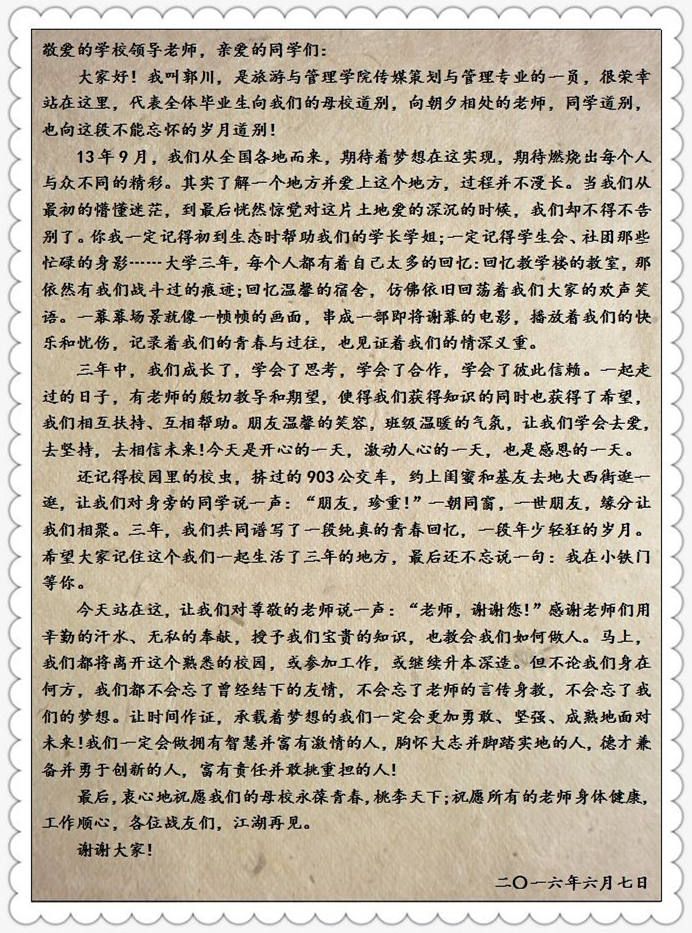 敬爱的学校领导老师，亲爱的同学们：
大家好！我叫郭川，是旅游与管理学院传媒策划与管理专业的一员，很荣幸
站在这里，代表全体毕业生向我们的母校道别，向朝夕相处的老师，同学道别，
也向这段不能忘怀的岁月道别！
13年9月，我们从全国各地而来，期待着梦想在这实现，期待燃烧出每个人
与众不同的精彩。其实了解一个地方并爱上这个地方，过程并不漫长。当我们从
最初的懵懂迷茫，到最后恍然惊觉对这片土地爱的深沉的时候，我们却不得不告
别了。你我一定记得初到生态时帮助我们的学长学姐；一定记得学生会、社团那些
忙碌的身影……大学三年，每个人都有着自己太多的回忆：回忆教学楼的教室，那
依然有我们战斗过的痕迹；回忆温馨的宿舍，仿佛依旧回荡着我们大家的欢声笑
语。一幕幕场景就像一帧帧的画面，串成一部即将谢幕的电影，播放着我们的快
乐和忧伤，记录着我们的青春与过往，也见证着我们的情深义重。
三年中，我们成长了，学会了思考，学会了合作，学会了彼此信赖。一起走
过的日子，有老师的殷切教导和期望，使得我们获得知识的同时也获得了希望，
我们相互扶持、互相帮助。朋友温馨的笑容，班级温暖的气氛，让我们学会去爱，
去坚持，去相信未来！今天是开心的一天，激动人心的一天，也是感恩的一天。
还记得校园里的校虫，挤过的903公交车，约上闺蜜和基友去地大西街逛一
逛，让我们对身旁的同学说一声：“朋友，珍重！”一朝同窗，一世朋友，缘分让
我们相聚。三年，我们共同谱写了一段纯真的青春回忆，一段年少轻狂的岁月。
希望大家记住这个我们一起生活了三年的地方，最后还不忘说一句：我在小铁门
等你。
今天站在这，让我们对尊敬的老师说一声：“老师，谢谢您！”感谢老师们用
辛勤的汗水、无私的奉献，授予我们宝贵的知识，也教会我们如何做人。马上，
我们都将离开这个熟悉的校园，或参加工作，或继续升本深造。但不论我们身在
何方，我们都不会忘了曾经结下的友情，不会忘了老师的言传身教，不会忘了我
们的梦想。让时间作证，承载着梦想的我们一定会更加勇敢、坚强、成熟地面对
未来！我们一定会做拥有智慧并富有激情的人，胸怀大志并脚踏实地的人，德才兼
备并勇于创新的人，富有责任并敢挑重担的人！
最后，衷心地祝愿我们的母校永葆青春，桃李天下；祝愿所有的老师身体健康，
工作顺心，各位战友们，江湖再见。
谢谢大家！
二〇一六年六月七日